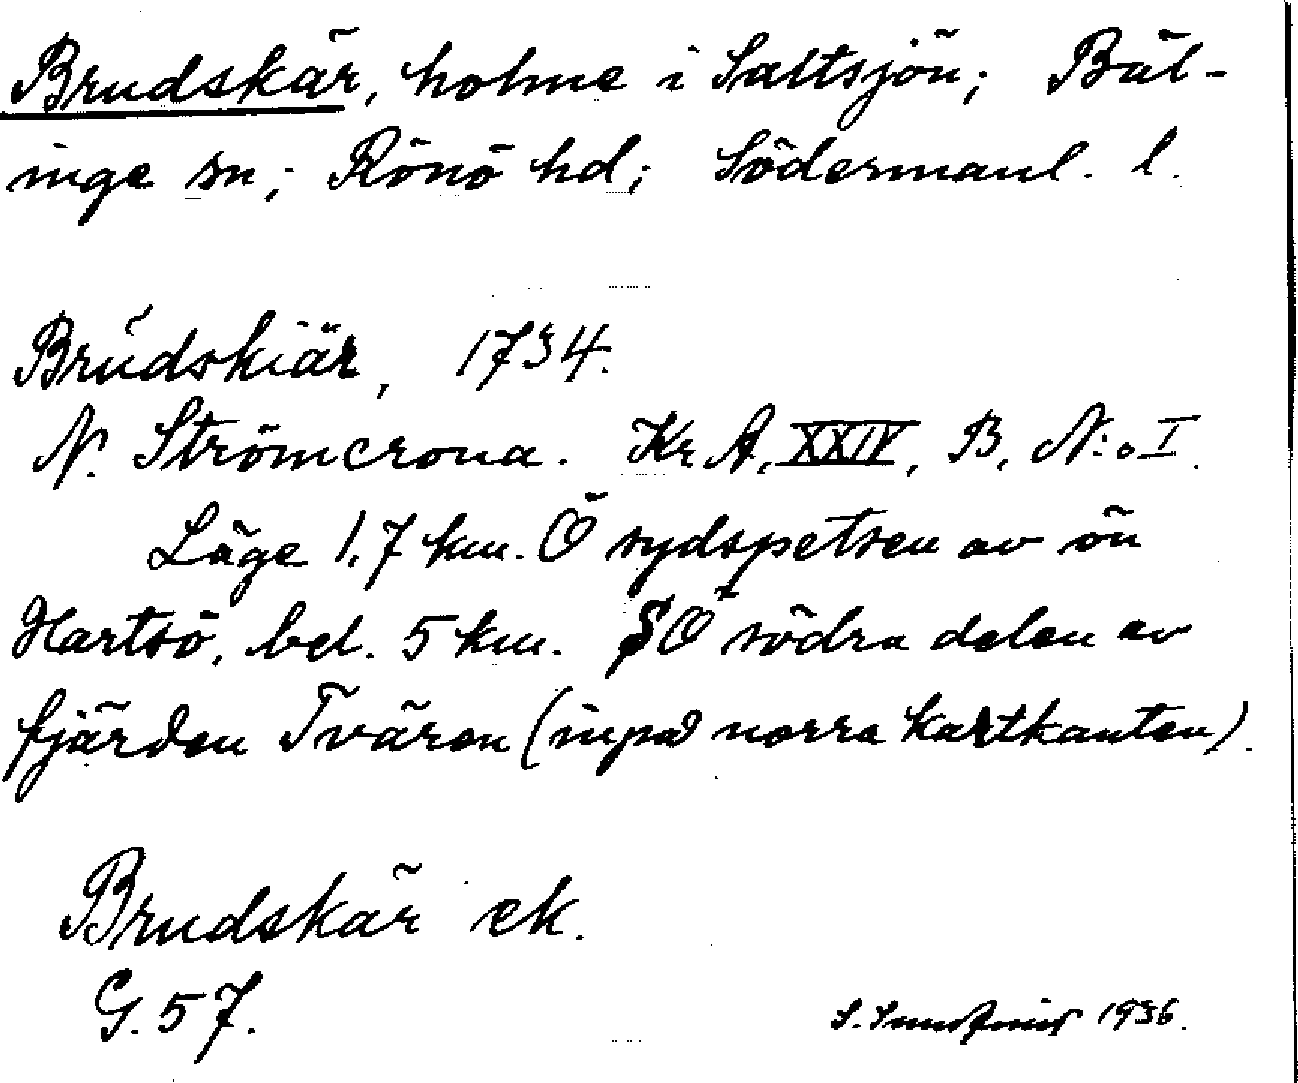 Brudskär, holme i Saltsjön; Bäl-
inge sn; Rönö hd; Södermanl. l.
Brudskiär, 1734.
N. Strömcrona. Kr. A. XXIV, B, N:o I.
Läge 1.7 km. Ö sydspetsen av ön
Hartsö, bel. 5 km. SÖ södra delen av
fjärden Tvären (inpå norra kartkanten).
Brudskär ek.
G. 57.
1936.